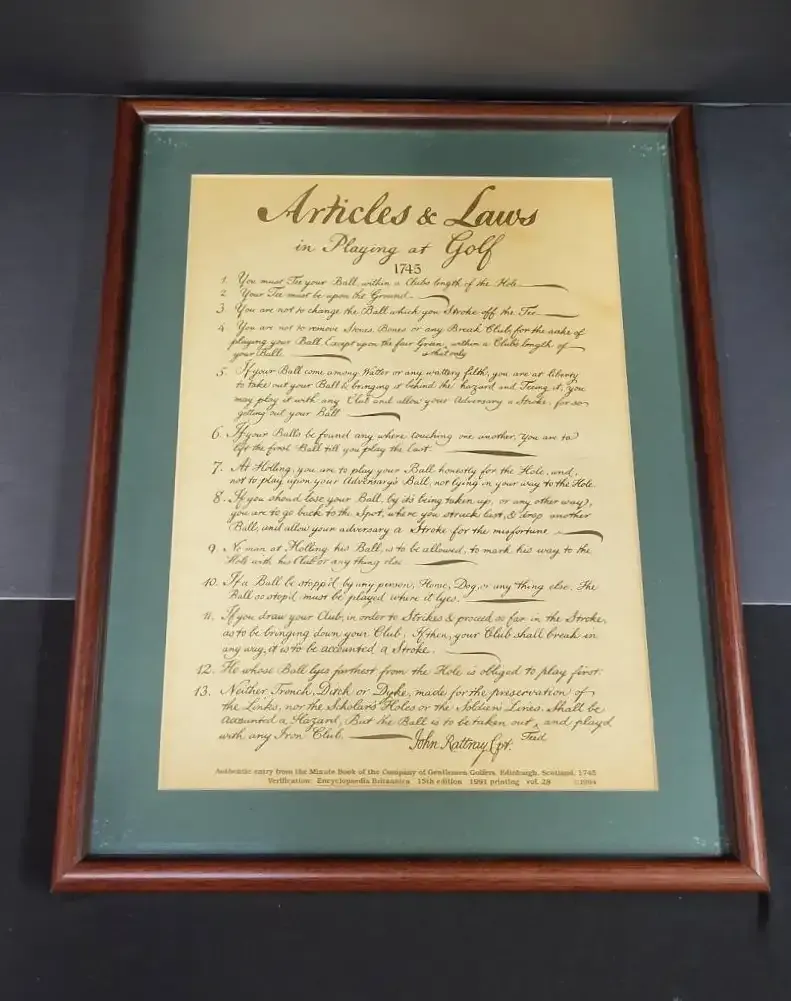 Articles & Laws
in Playing at Golf
1745
1. You must Tee your Ball, within a Clubs length of the Hole
2 Your Tee must be upon the Ground
3 You are not to change the Ball which you Stroke off the Tee
4 You are not to remove Stones, Bones or any Break Club, for the sake of
playing your Ball, Except upon the fair Green, within a Clubs length of
your Ball. & that only
5. If your Ball come among Watter or any wattery filth, you are at liberty
to take out your Ball & bringing it behind the hazard and Teeing it, you
may play it with any Club and allow your Adversary a Stroke, for so
getting out your Ball
6. If your Balls be found any where touching one another, You are to
lift the first Ball till you play the last.
7. At Holling, you are to play your Ball honestly for the Hole, and,
not to play upon your Adversary's Ball, not lying in your way to the Hole.
8. If you shoud lose your Ball, by it's being taken up, or any other way,
you are to go back to the Spot, where you struck last, & drop another
Ball, and allow your adversary a Stroke for the misfortune
9. No man at Holling his Ball, is to be allowed, to mark his way to the
Hole with his Club or any thing else
10. If a Ball be stopp'd by any person, Horse, Dog, or any thing else, The
Ball so stop'd must be played where it lyes.
11. If you draw your Club, in order to Strike & proceed so far in the Stroke,
as to be bringing down your Club; If then, your Club shall break in
any way, it is to be accounted a Stroke.
12. He whose Ball lyes farthest from the Hole is obliged to play first.
13. Neither Trench, Ditch or Dyke, made for the preservation of
the Links, nor the Scholar's Holes or the Soldier's Lines, Shall be
accounted a Hazard, But the Ball is to be taken out, and play'd
with any Iron Club. John Rattray Cpt. Teed
Authentic entry from the Minute Book of the Company of Gentlemen Golfers, Edinburgh, Scotland, 1745
Verification: Encyclopaedia Britannica 15th edition 1991 printing vol. 28 ©1994